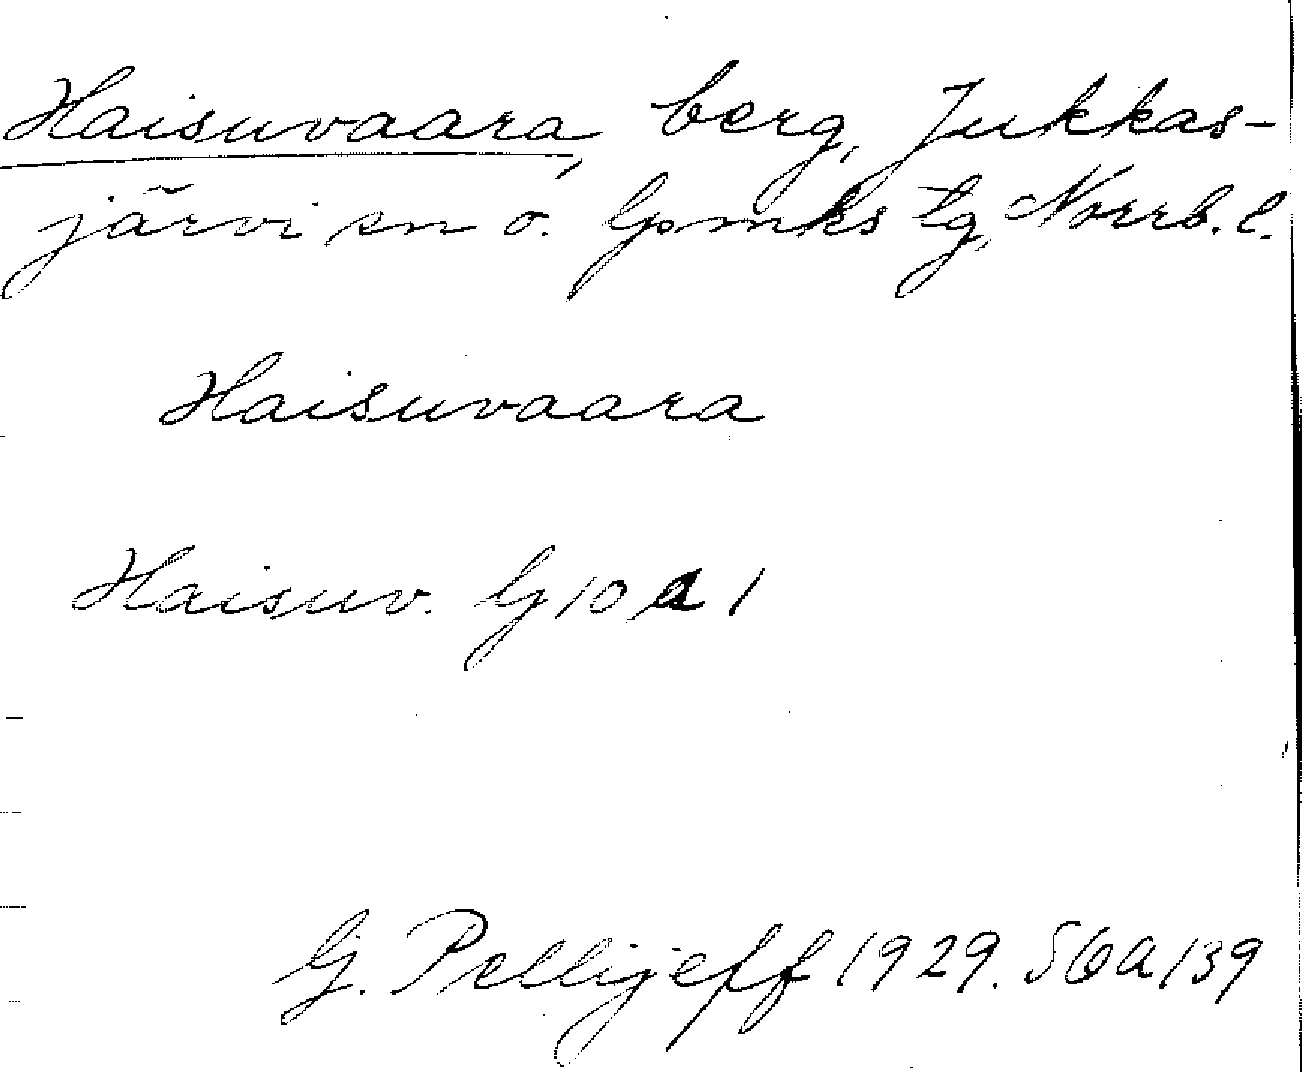 Haisuvaara, berg, Jukkas-
järvi sn o. lpmks tg, Norrb. l.
Haisuvaara
Haisuv. G 10 a 1
G. Pellijeff 1929. S6a 139